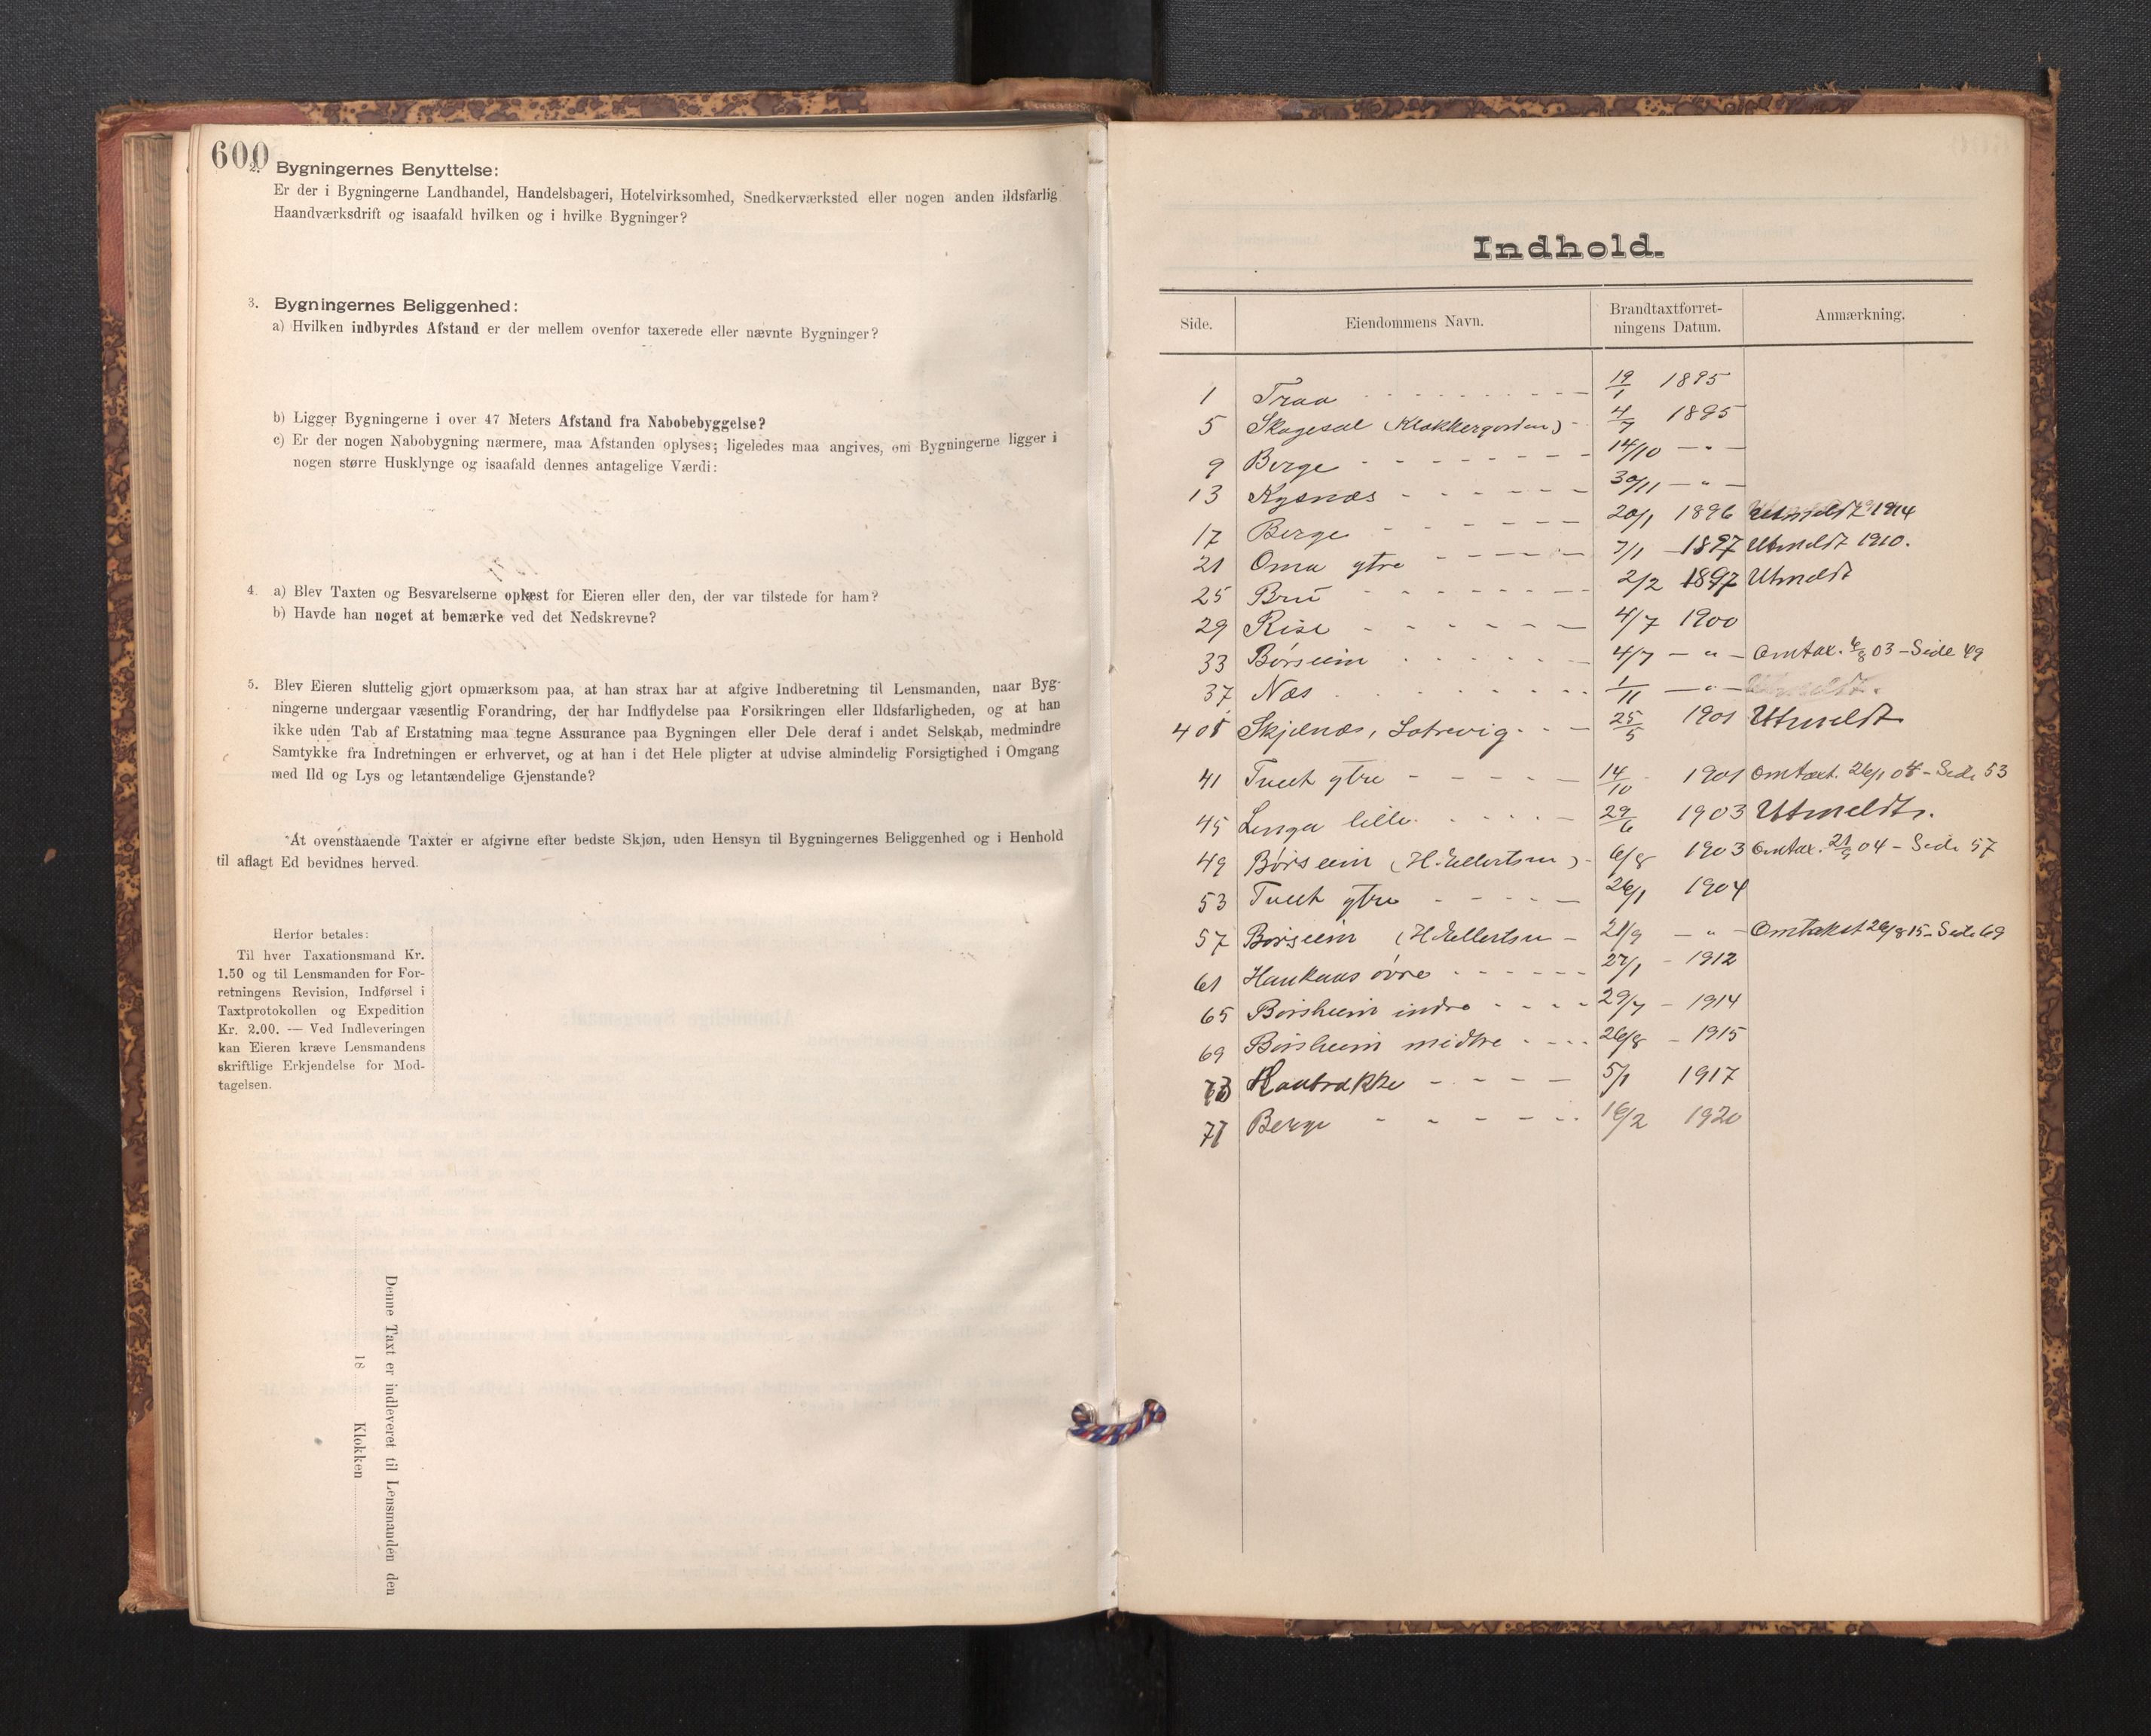 600
2. Bygningernes Benyttelse:
Er der i Bygningerne Landhandel, Handelsbageri, Hotelvirksomhed, Snedkerværksted eller nogen anden ildsfarlig
Haandværksdrift og isaafald hvilken og i hvilke Bygninger?
3. Bygningernes Beliggenhed:
a) Hvilken indbyrdes Afstand er der mellem ovenfor taxerede eller nævnte Bygninger?
b) Ligger Bygningerne i over 47 Meters Afstand fra Nabobebyggelse?
c) Er der nogen Nabobygning nærmere, maa Afstanden oplyses; ligeledes maa angives, om Bygningerne ligger i
nogen større Husklynge og isaafald dennes antagelige Værdi:
4. a) Blev Taxten og Besvarelserne oplæst for Eieren eller den, der var tilstede for ham?
b) Havde han noget at bemærke ved det Nedskrevne?
5. Blev Eieren sluttelig gjort opmærksom paa, at han strax har at afgive Indberetning til Lensmanden, naar Byg-
ningerne undergaar væsentlig Forandring, der har Indflydelse paa Forsikringen eller Ildsfarligheden, og at han
ikke uden Tab af Erstatning maa tegne Assurance paa Bygningen eller Dele deraf i andet Selskab, medmindre
Samtykke fra Indretningen er erhvervet, og at han i det Hele pligter at udvise almindelig Forsigtighed i Omgang
med Ild og Lys og letantændelige Gjenstande?
At ovenstaaende Taxter er afgivne efter bedste Skjøn, uden Hensyn til Bygningernes Beliggenhed og i Henhold
til aflagt Ed bevidnes herved.
Herfor betales:
Til hver Taxationsmand Kr.
1.50 og til Lensmanden for For-
retningens Revision, Indførsel i
Taxtprotokollen og Expedition
Kr. 2.00. — Ved Indleveringen
kan Eieren kræve Lensmandens
skriftlige Erkjendelse for Mod-
tagelsen.
Denne Taxt er indleveret til Lensmanden den
18 Klokken
Indhold.
Side. Eiendommens Navn. Brandtaxtforret-ningens Datum. Anmærkning.
1 Traa 19/1 1895
5 Skogesal (Klokkergarden) 4/7 1895
9 Berge 14/10 — " —
13 Kysnæs 30/11 — " —
17 Berge 20/1 1896 Utmeldt 1914
21 Oma ytre 7/1 1897 Utmeldt 1910.
25 Bru 2/2 1897 Utmeldt
29 Rise 4/7 1900
33 Børseim 4/7 — " — Omtax. 6/8 03 - Side 49
37 Næs 1/11 — " — Utmeldt.
Skjelnæs, 25/5 1901 Utmeldt
41 Tveit ytre 14/10 1901 Omtaxt. 26/1 04 - Side 53
45 Linga lille 29/6 1903 Utmeldt.
49 Børseim (H. Ellertsen) 6/8 1903 Omtax. 21/9 04 - Side 57
53 Tveit ytre 26/1 1904
57 Børseim (H. Ellertsen 21/9 — " — Omtakst 26/8 15 - Side 69
61 Haukaas øvre 27/1 - 1912
65 Børsheim indre 29/7 - 1914
69 Børsheim midtre 26/8 - 1915
73 Haabrække 5/1 1917
77 Berge 16/2 1920